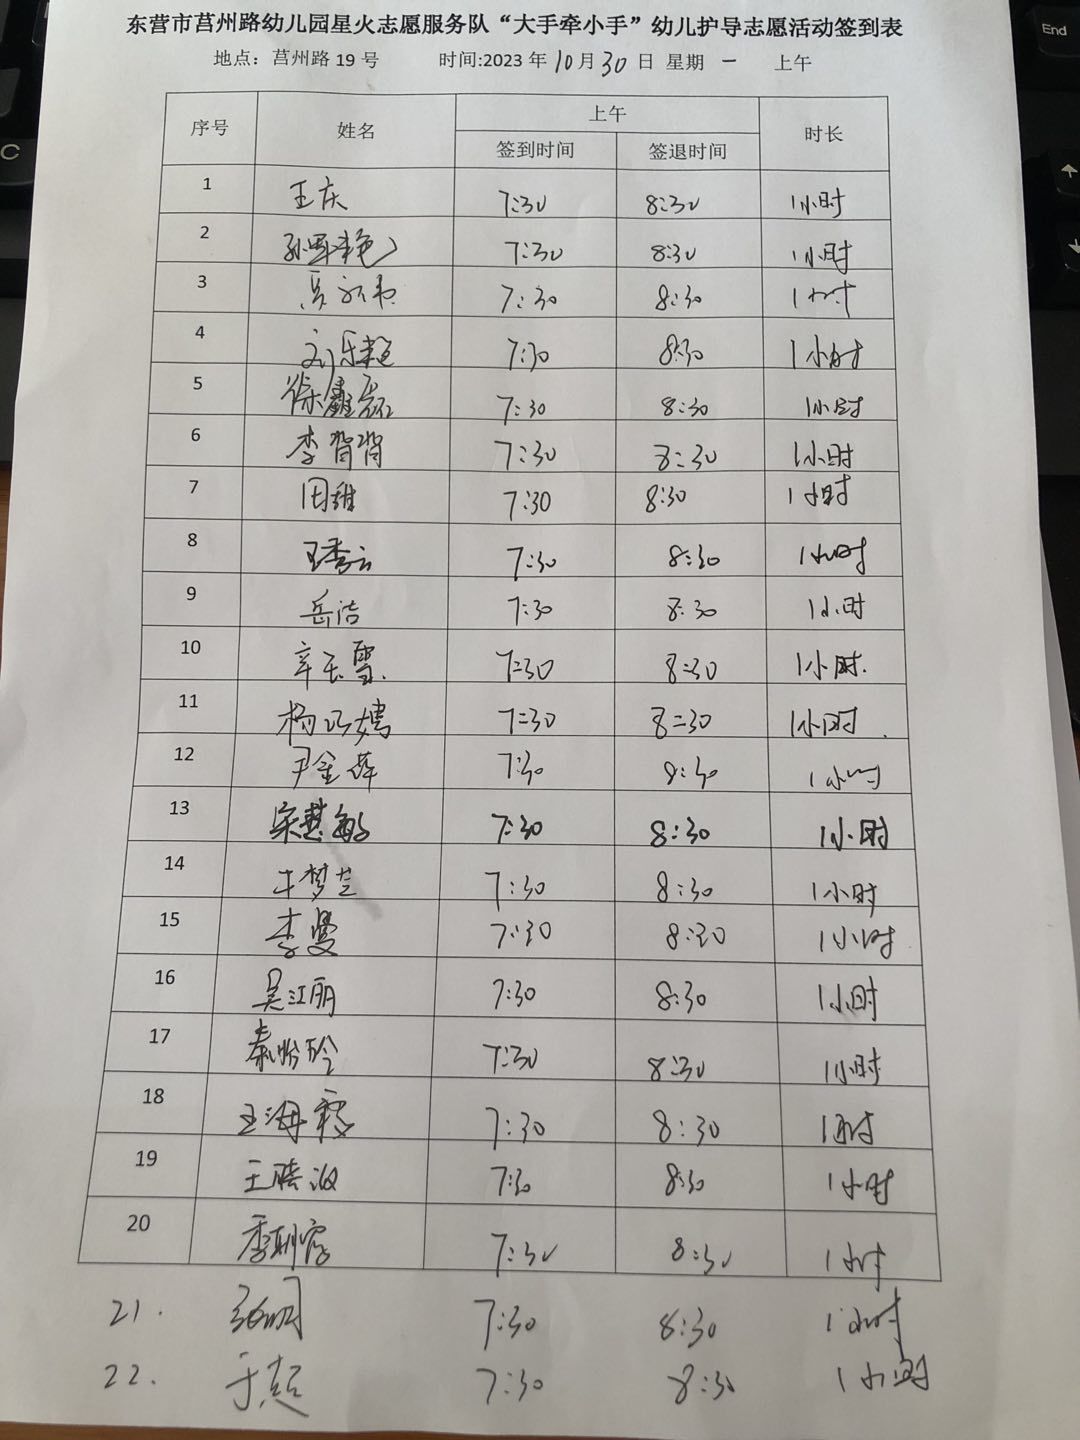 东营市莒州路幼儿园星火志愿服务队“大手牵小手”幼儿护导志愿活动签到表
地点：莒州路 19 号 时间:2023 年 10 月 30 日 星期 一 上午
序号 姓名 上午 时长
签到时间 签退时间
1 王庆 7:30 8:30 1小时
2 7:30 8:30 1小时
3 7:30 8:30 1小时
4 刘乐艳 7:30 8:30 1小时
5 徐鑫磊 7:30 8:30 1小时
6 李肖肖 7:30 8:30 1小时
7 田雅 7:30 8:30 1小时
8 王秀云 7:30 8:30 1小时
9 岳洁 7:30 8:30 1小时
10 辛玉雪 7:30 8:30 1小时.
11 杨巧娉 7:30 8:30 1小时.
12 尹金萍 7:30 8:30 1小时
13 宋慧敏 7:30 8:30 1小时
14 牛梦兰 7:30 8:30 1小时
15 李曼 7:30 8:30 1小时
16 吴江丽 7:30 8:30 1小时
17 秦盼玲 7:30 8:30 1小时
18 王海霞 7:30 8:30 1小时
19 7:30 8:30 1小时
20 7:30 8:30 1小时
21. 7:30 8:30 1小时
22. 于超 7:30 8:30 1小时
End
C